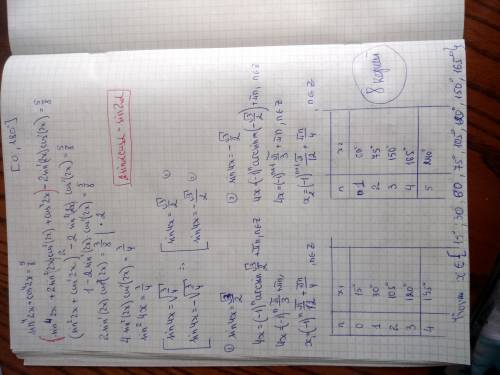 [0°, 180°]
sin⁴2x + cos⁴2x = 5/8
(sin⁴2x + 2sin²(2x)cos²(2x) + cos⁴2x) - 2sin²(2x)cos²(2x) = 5/8
(sin²2x + cos²2x)² - 2sin²(2x)cos²(2x) = 5/8
1 - 2sin²(2x)cos²(2x) = 5/8
2sin²(2x)cos²(2x) = 3/8 | · 2
4sin²(2x)cos²(2x) = 3/4
sin²4x = 3/4
2sinαcosα = sin2α
[ sin4x = √3/4
sin4x = -√3/4
[ sin4x = √3/2 ①
sin4x = -√3/2 ②
① sin4x = √3/2
4x = (-1)ⁿ arcsin √3/2 + πn, n∈Z
4x = (-1)ⁿ π/3 + πn, n∈Z
x₁ = (-1)ⁿ π/12 + πn/4, n∈Z
② sin4x = -√3/2
4x = (-1)ⁿ arcsin(-√3/2) + πn, n∈Z
4x = (-1)ⁿ⁺¹ π/3 + πn, n∈Z
x₂ = (-1)ⁿ⁺¹ π/12 + πn/4, n∈Z
n x₁
0 15°
1 30°
2 105°
3 120°
4
n x₂
1 60°
2 75°
3 150°
4 165°
5 240°
8 корней
x ∈ {15°, 30°, 60°, 75°, 105°, 120°, 150°, 165°}